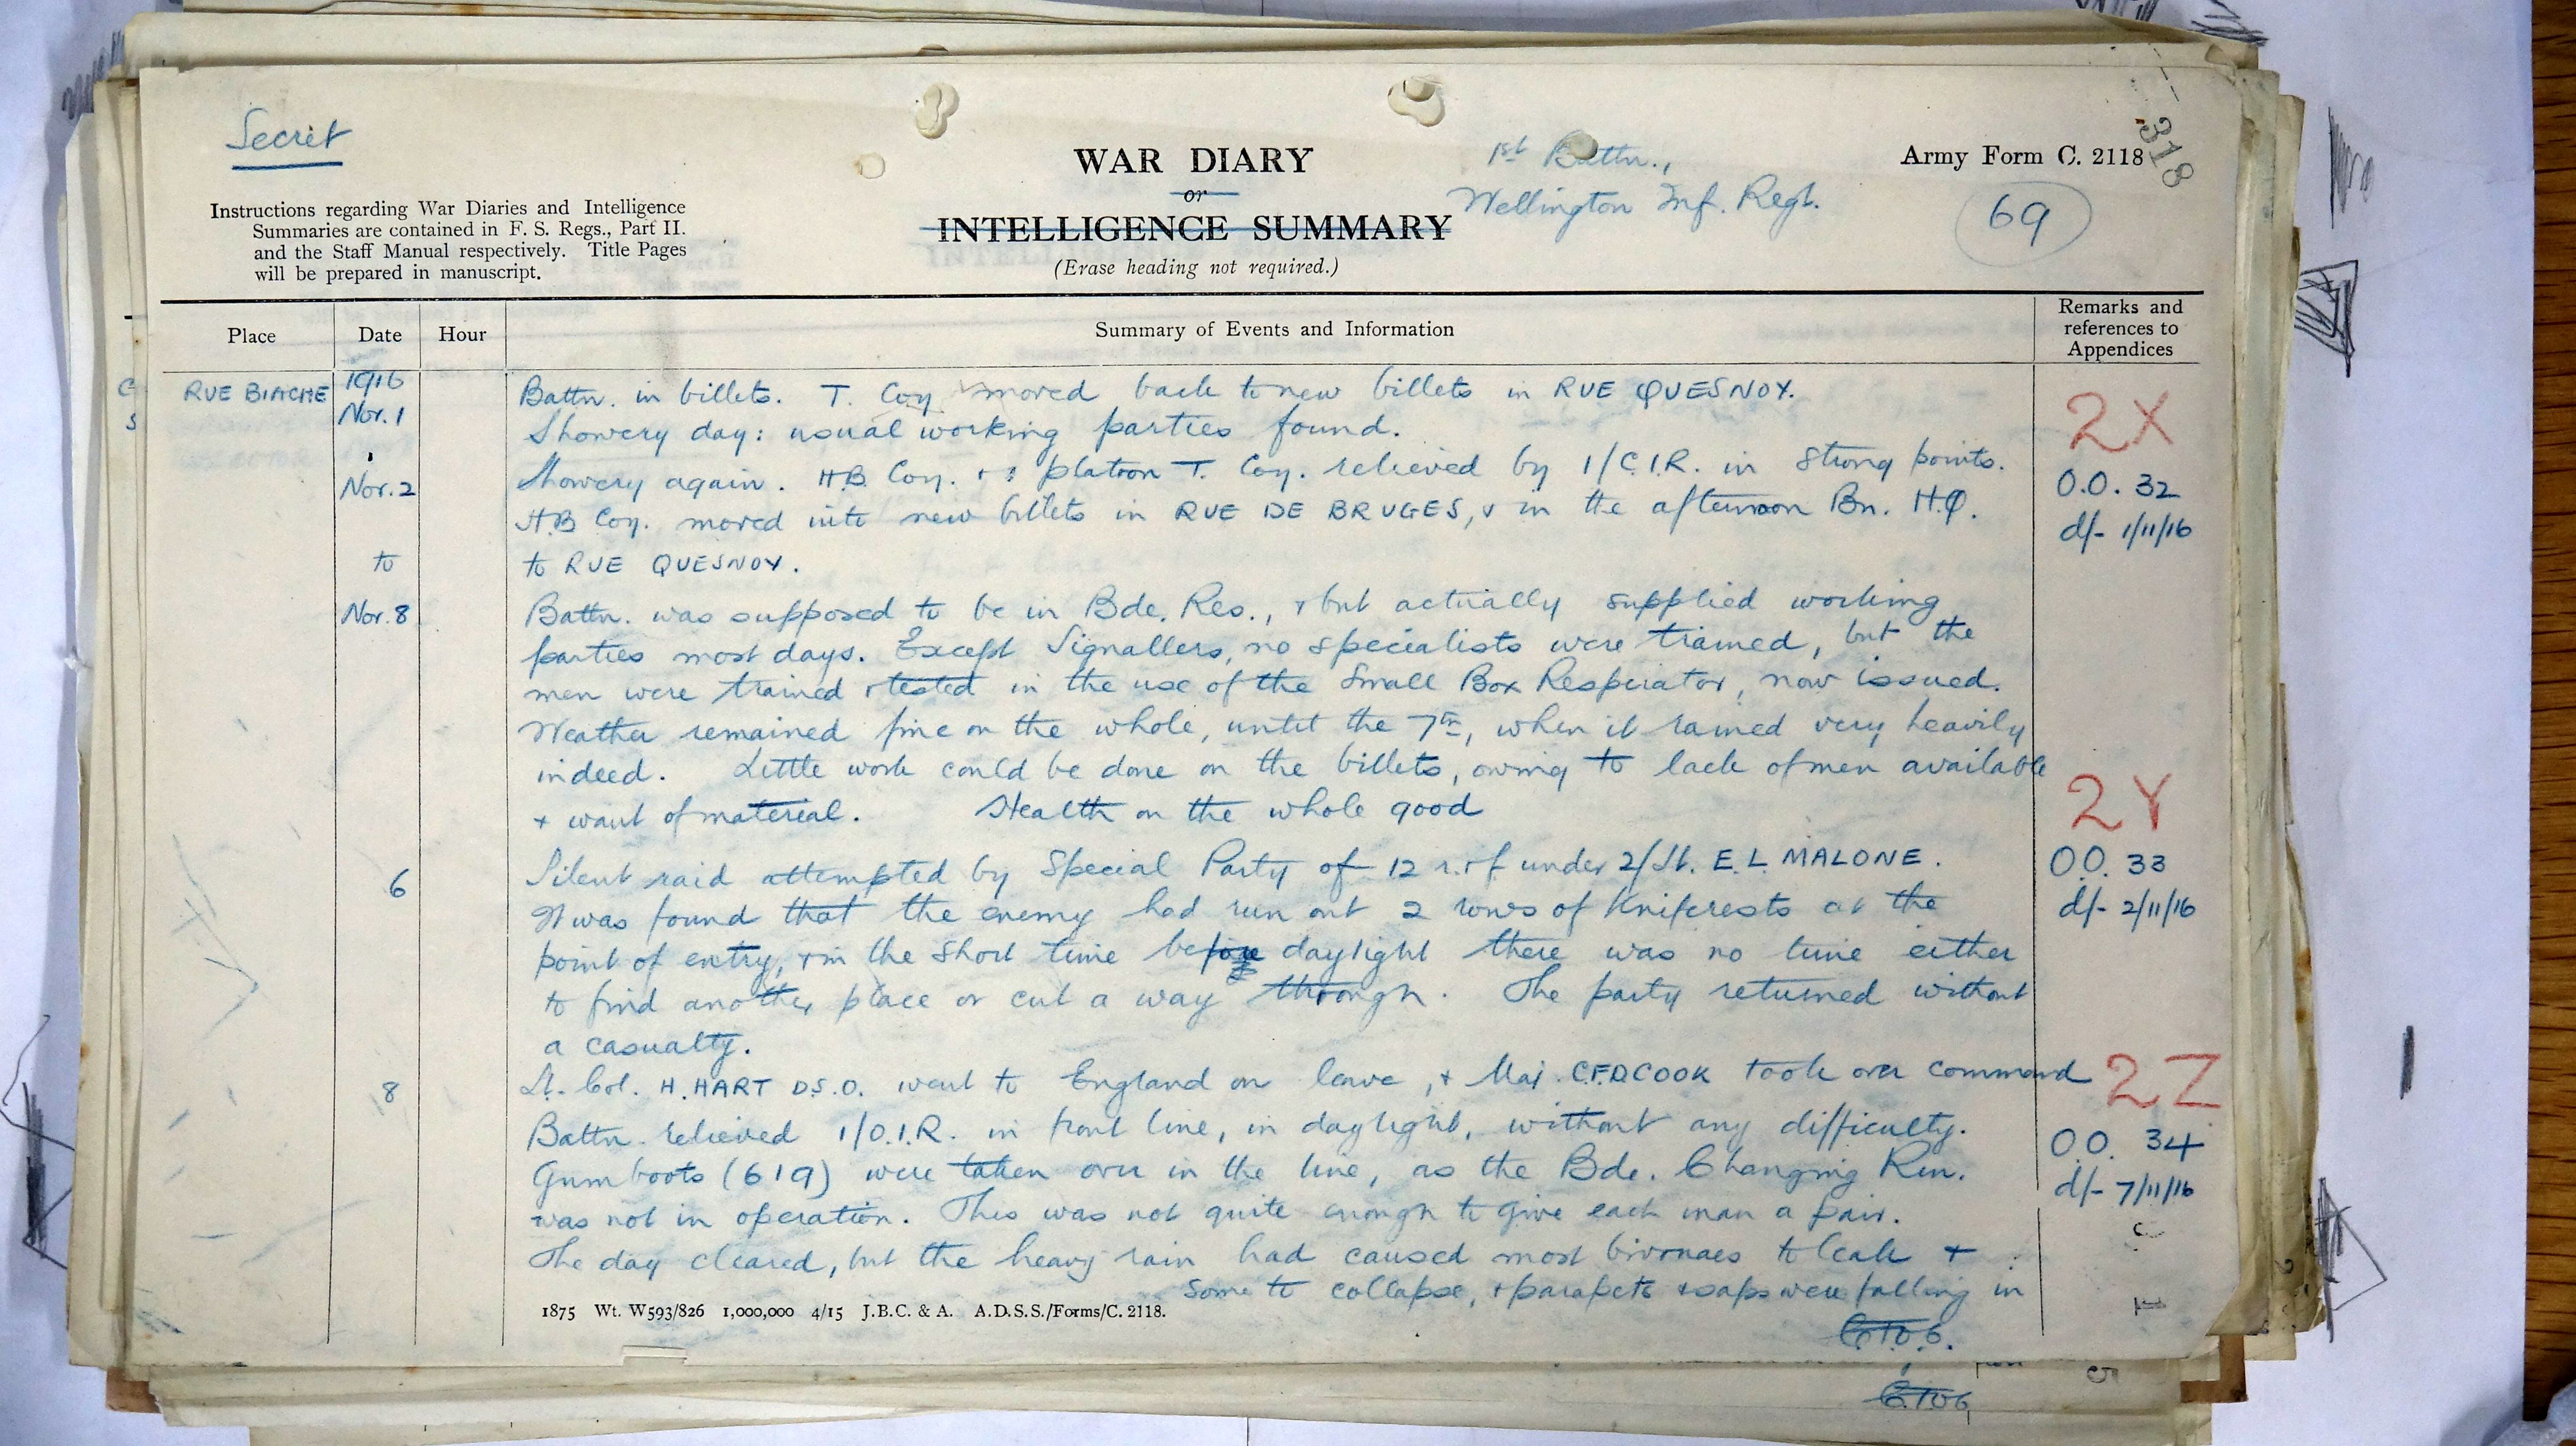 Secret
318
WAR DIARY
or
INTELLIGENCE SUMMARY
(Erase heading not required.)
1st Battn.,
Wellington Inf. Regt.
Army Form C. 2118
69
Instructions regarding War Diaries and Intelligence
Summaries are contained in F. S. Regs., Part II.
and the Staff Manual respectively. Title Pages
will be prepared in manuscript.
Place Date Hour Summary of Events and Information Remarks and
references to
Appendices
RUE BIACHE 1916
Nov. 1 Battn. in billets. T. Coy moved back to new billets in RUE QUESNOY. 2X
Showery day: usual working parties found.
Nov. 2 Showery again. H.B. Coy. + 1 platoon T. Coy. relieved by 1/C.I.R. in strong points. O.O. 32
H.B Coy. moved into new billets in RUE DE BRUGES, & in the afternoon Bn. H.Q. d/- 1/11/16
to to RUE QUESNOY.
Nov. 8 Battn. was supposed to be in Bde. Res., but actually supplied working
parties most days. Except Signallers, no specialists were trained, but the
men were trained & tested in the use of the Small Box Respirator, now issued.
Weather remained fine on the whole, until the 7th, when it rained very heavily
indeed. Little work could be done on the billets, owing to lack of men available
+ want of material. Health on the whole good 2Y
6 Silent raid attempted by Special Party of 12 r. & f under 2/Lt. E. L. MALONE. O.O. 33
It was found that the enemy had run out 2 rows of Kniferests at the d/- 2/11/16
point of entry, & in the short time before daylight there was no time either
to find another place or cut a way through. The party returned without
a casualty.
8 Lt. Col. H. HART D.S.O. went to England on leave, & Maj. C.F.D. COOK took over command 2Z
Battn. relieved 1/O.I.R. in front line, in daylight, without any difficulty. O.O. 34
Gumboots (619) were taken over in the line, as the Bde. Changing Rm. d/- 7/11/16
was not in operation. This was not quite enough to give each man a pair.
The day cleared, but the heavy rain had caused most bivouacs to leak +
some to collapse, & parapets & saps were falling in
1875 Wt. W593/826 1,000,000 4/15 J.B.C. & A. A.D.S.S./Forms/C. 2118.